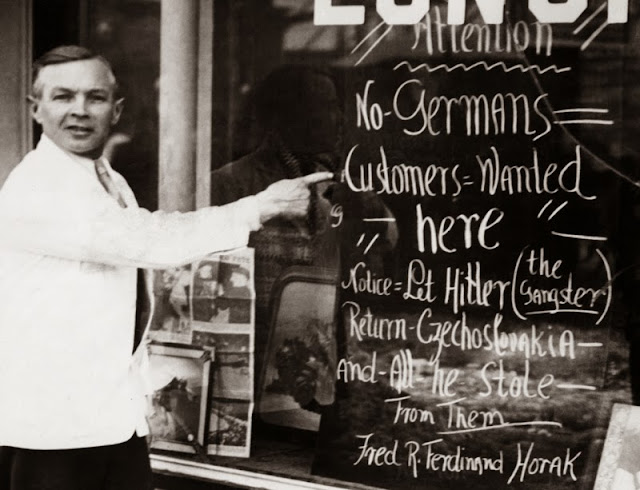 Attention
No-Germans
Customers=Wanted
here
Notice=Let Hitler (the Gangster)
Return-Czechoslovakia-
and-All-he Stole-
From Them
Fred R. Ferdinand Horak